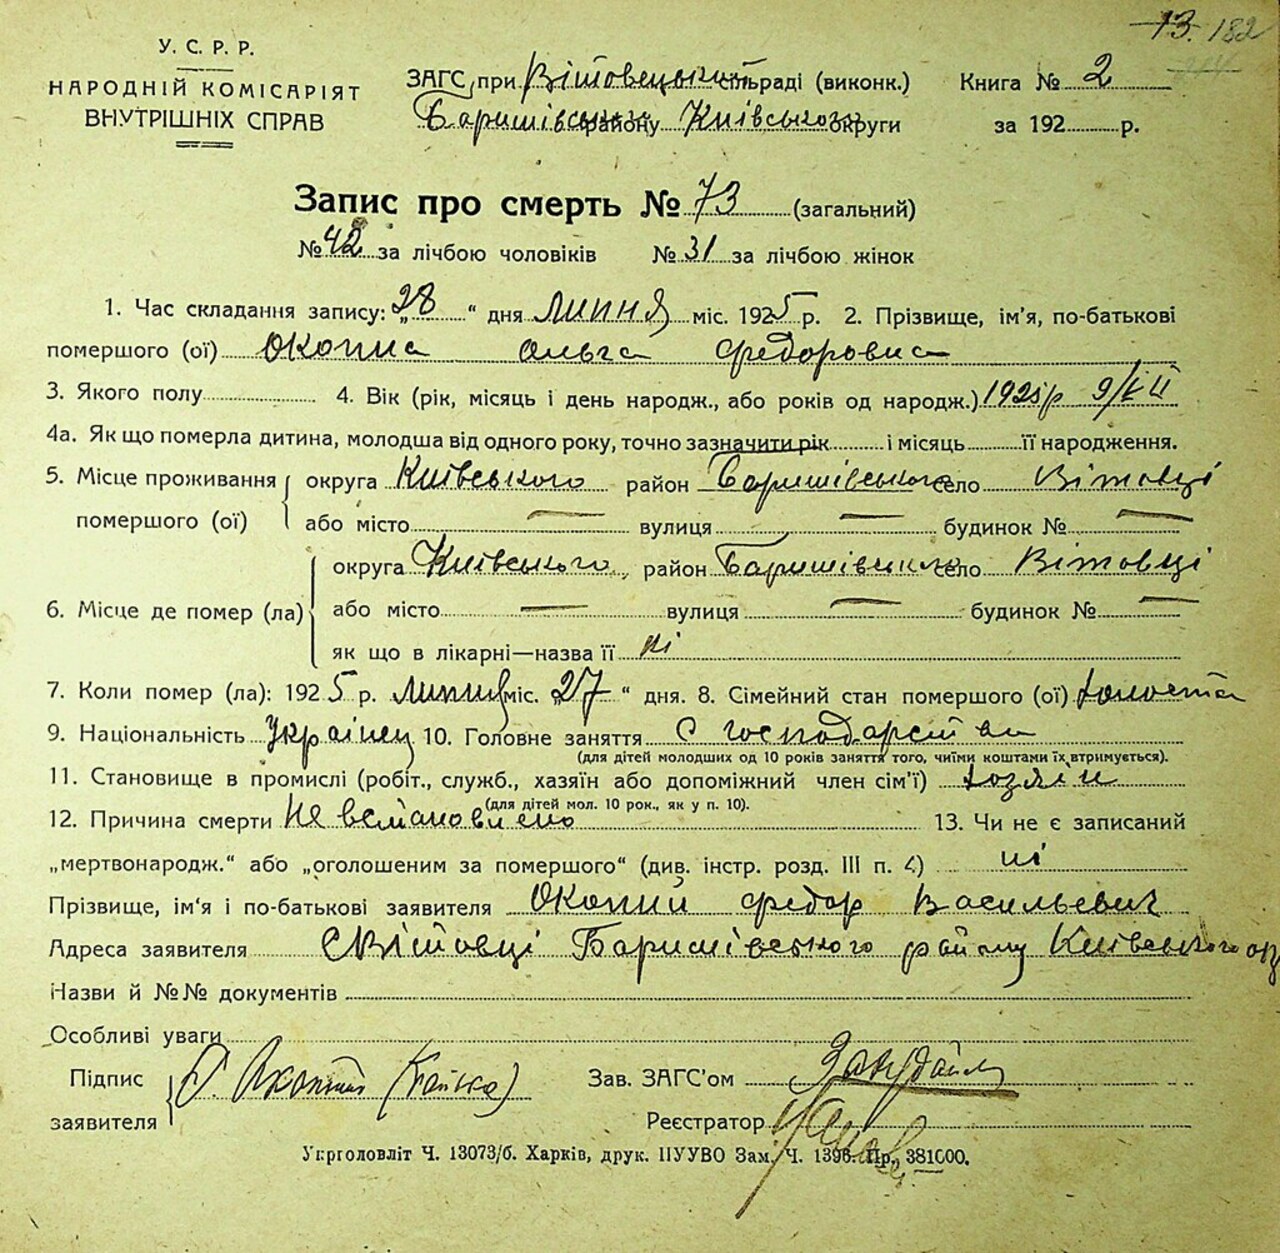 13. 182
У. С. Р. Р.
НАРОДНІЙ КОМІСАРІЯТ
ВНУТРІШНІХ СПРАВ
ЗАГС при Вітовецькій сільраді (виконк.)
Баришівського району Київського округи
Книга № 2
за 192 р.
Запис про смерть № 73 (загальний)
№ 42 за лічбою чоловіків № 31 за лічбою жінок
1. Час складання запису: „28“ дня Липня міс. 1925 р. 2. Прізвище, ім'я, по-батькові
помершого (ої) Окопна Ольга Федоровна
3. Якого полу 4. Вік (рік, місяць і день народж., або років од народж.) 1925 р 9/VII
4а. Як що померла дитина, молодша від одного року, точно зазначити рік і місяць її народження.
5. Місце проживання помершого (ої) округа Київського район Баришівського село Вітовці
або місто — вулиця — будинок № —
6. Місце де помер (ла) округа Київського район Баришівського село Вітовці
або місто — вулиця — будинок № —
як що в лікарні—назва її ні
7. Коли помер (ла): 1925 р. Липня міс. „27“ дня. 8. Сімейний стан помершого (ої) холоста
9. Національність Українец 10. Головне заняття С господарства
(для дітей молодших од 10 років заняття того, чиїми коштами їх втримується).
11. Становище в промислі (робіт., служб., хазяїн або допоміжний член сім'ї) хозяін
(для дітей мол. 10 рок., як у п. 10).
12. Причина смерти Не встановлено 13. Чи не є записаний
„мертвонародж.“ або „оголошеним за помершого“ (див. інстр. розд. III п. 4) ні
Прізвище, ім'я і по-батькові заявителя Окопний Федор Васильевич
Адреса заявителя С Вітовці Баришівського району Київського окр
Назви й №№ документів
Особливі уваги
Підпис заявителя О. Окопний (батько)
Зав. ЗАГС'ом
Реєстратор
Укрголовліт Ч. 13073/б. Харків, друк. ПУУВО Зам. Ч. 1396. Пр. 381000.